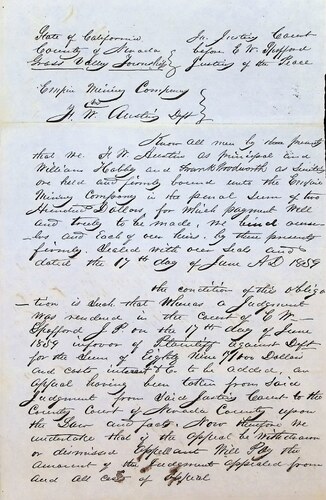 State of California In Justices Court
County of Nevada before E. W. Spofford
Grass Valley Township Justice of the Peace
Empire Mining Company
vs
F. W. Austin Deft
Know all men by these presents
that we F. W. Austin as principal and
William and Frank Woodworth as Sureties
are held and firmly bound unto the Empire
Mining Company in the penal Sum of two
Hundred Dollars for which payment Well
and truly to be made, we bind oursel-
ves and Each of our heirs, by these presents
firmly Sealed with our Seals and
dated the 17th day of June A.D 1859
the condition of this obliga
-tion is Such that Whereas a Judgment
was rendered in the Court of E W
Spofford J. P. on the 17th day of June
1859 in favor of Plaintiff against Deft
for the Sum of Eighty Nine Dollars
and costs, to be added, an
appeal having been taken from Said
Judgment from Said Justices Court to the
County Court of Nevada County upon
the Law and fact. Now therefore we
undertake that if the appeal be Withdrawn
or dismissed Appellant Will Pay the
amount of the Judgment appealed from
and all cost of Appeal